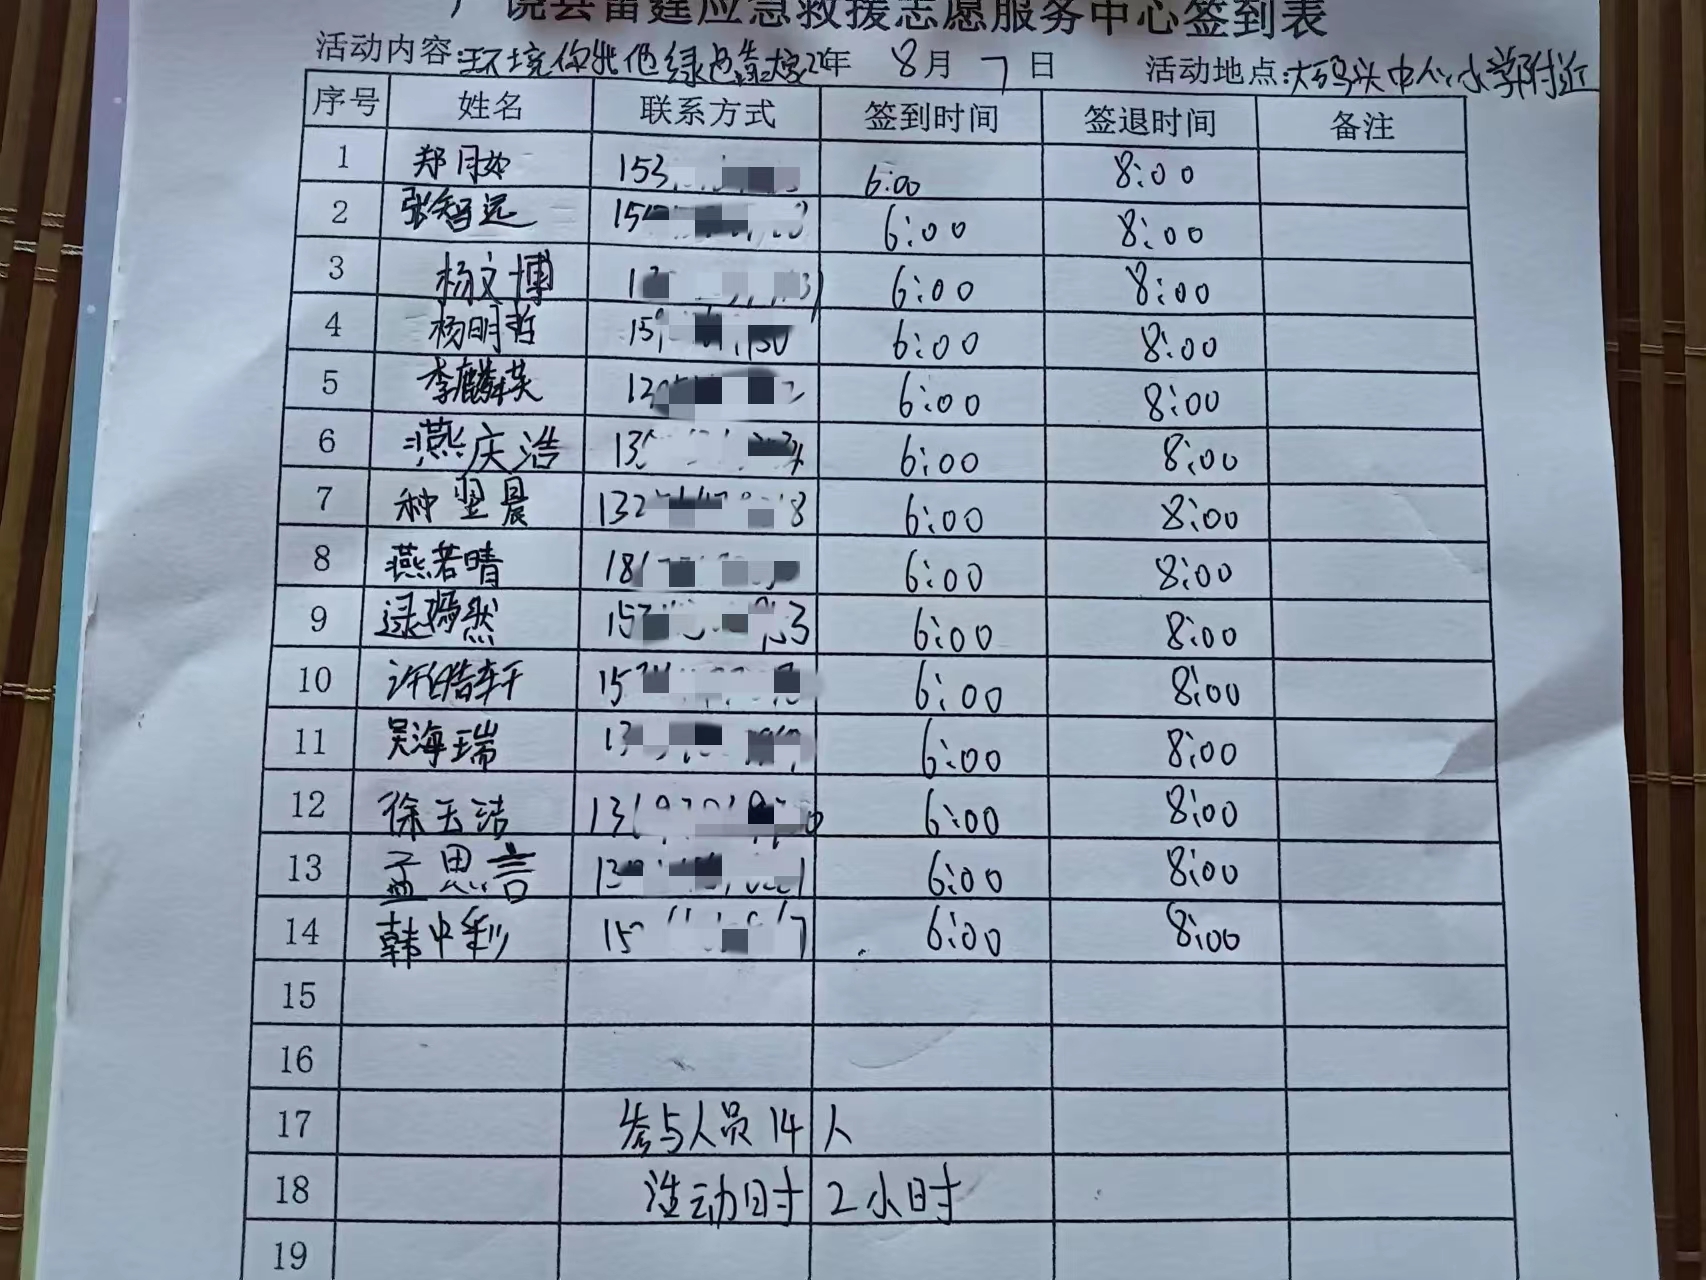 广饶县雷霆应急救援志愿服务中心签到表
活动内容:环境你我他绿色 22年 8月 7日 活动地点:大码头中心小学附近
序号 姓名 联系方式 签到时间 签退时间 备注
1 郑月如 153 6:00 8:00
2 张智远 15 6:00 8:00
3 杨文博 1 6:00 8:00
4 杨明哲 15 6:00 8:00
5 李麟英 1 6:00 8:00
6 燕庆浩 13 6:00 8:00
7 种翌晨 132 8 6:00 8:00
8 燕若晴 18 6:00 8:00
9 逯嫣然 15 3 6:00 8:00
10 许皓轩 15 6:00 8:00
11 吴海瑞 13 6:00 8:00
12 徐玉洁 13 6:00 8:00
13 孟思言 13 6:00 8:00
14 韩中彩 15 7 6:00 8:00
15
16
17 参与人员14人
18 活动时 2小时
19